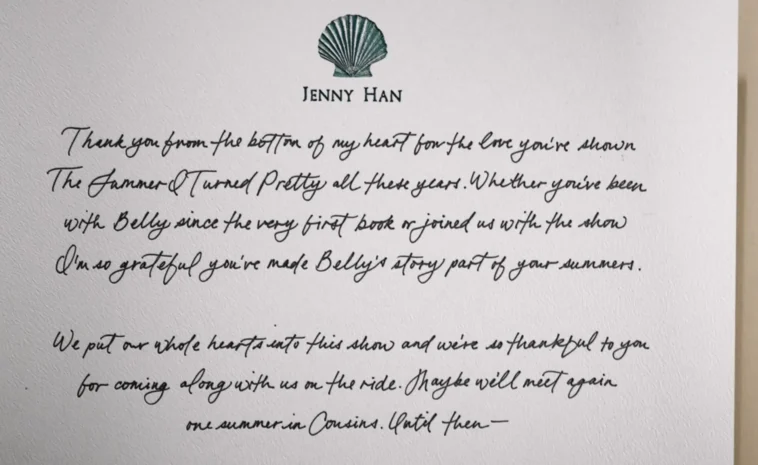 JENNY HAN
Thank you from the bottom of my heart for the love you've shown
The Summer I Turned Pretty all these years. Whether you've been
with Belly since the very first book or joined us with the show
I'm so grateful you've made Belly's story part of your summers.
We put our whole hearts into this show and we're so thankful to you
for coming along with us on the ride. Maybe we'll meet again
one summer in Cousins. Until then—